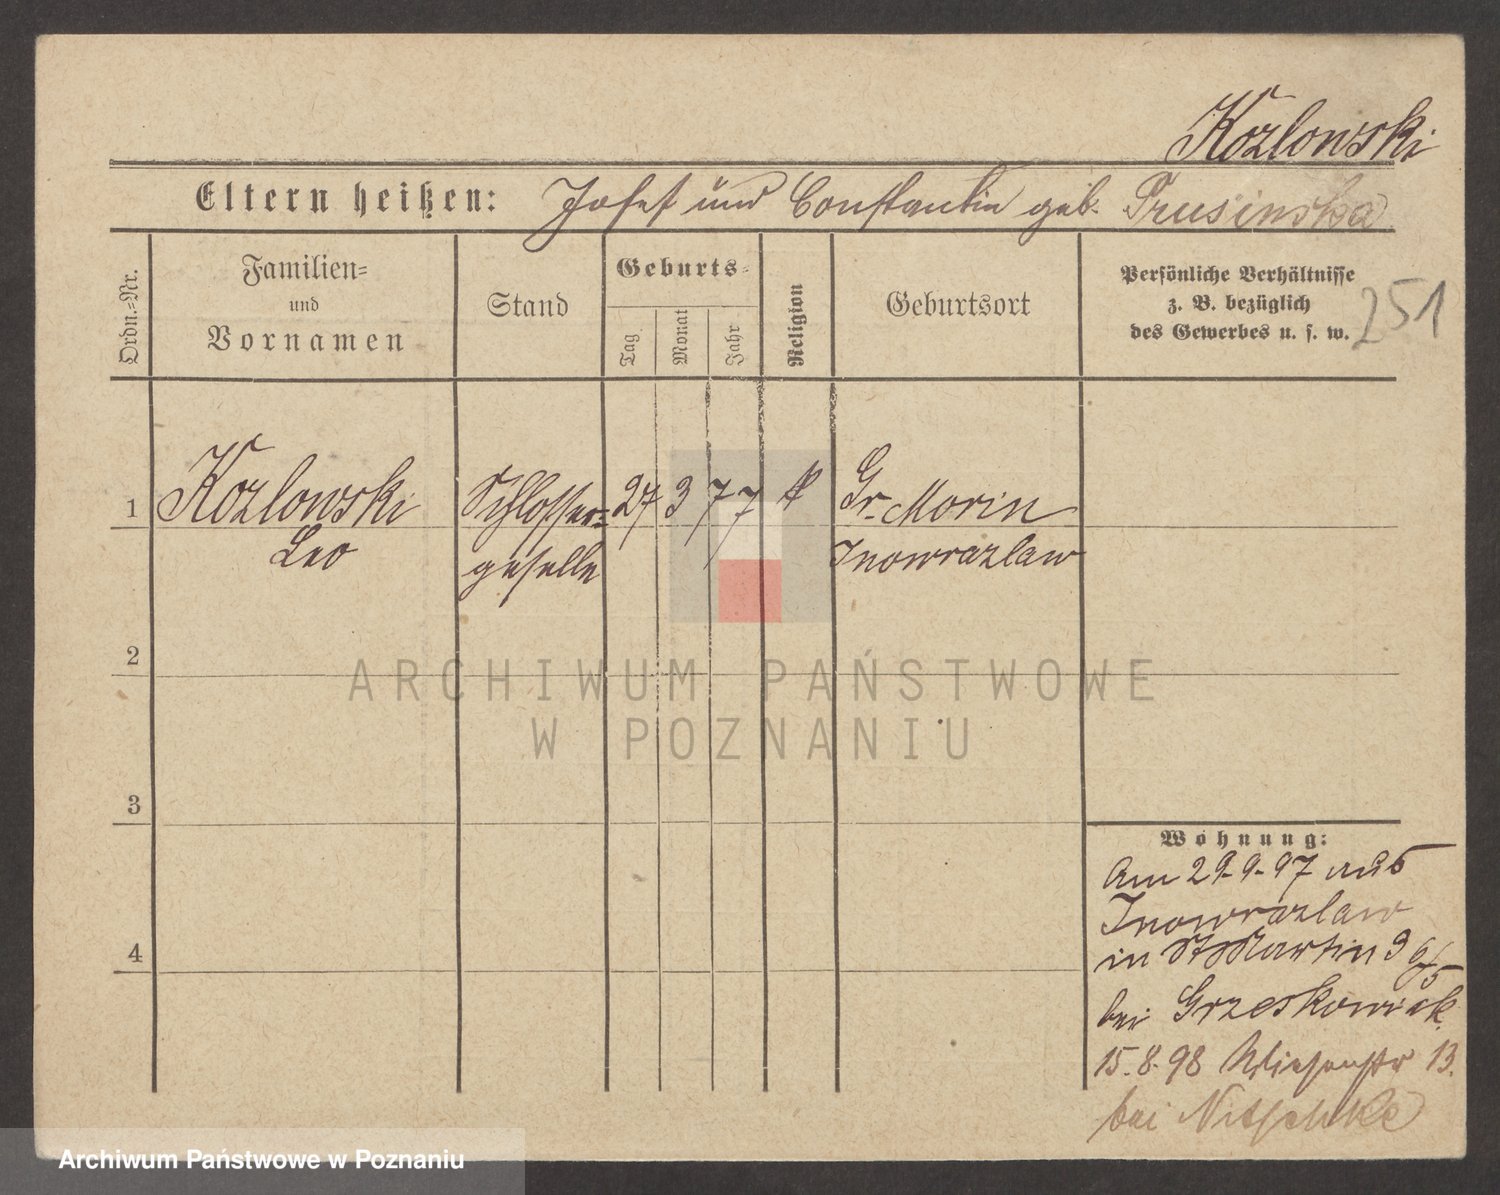 Kozlowski
Eltern heißen: Josef und Constantin geb. Prusinska
Ordn.-Nr.
Familien-
und
Vornamen
Stand
Geburts-
Tag
Monat
Jahr
Religion
Geburtsort
Persönliche Verhältnisse
z. B. bezüglich
des Gewerbes u. s. w.
251
1 Kozlowski Schlosser= 27 3 77 k Gr. Morin
Leo geselle Inowrazlaw
2
3
4
Wohnung:
Am 29.9.97 aus
Inowrazlaw
in St Martin 9
bei Grzeskowiak
15.8.98 Wiesenstr 13.
bei Nitschke
ARCHIWUM PAŃSTWOWE
W POZNANIU
Archiwum Państwowe w Poznaniu